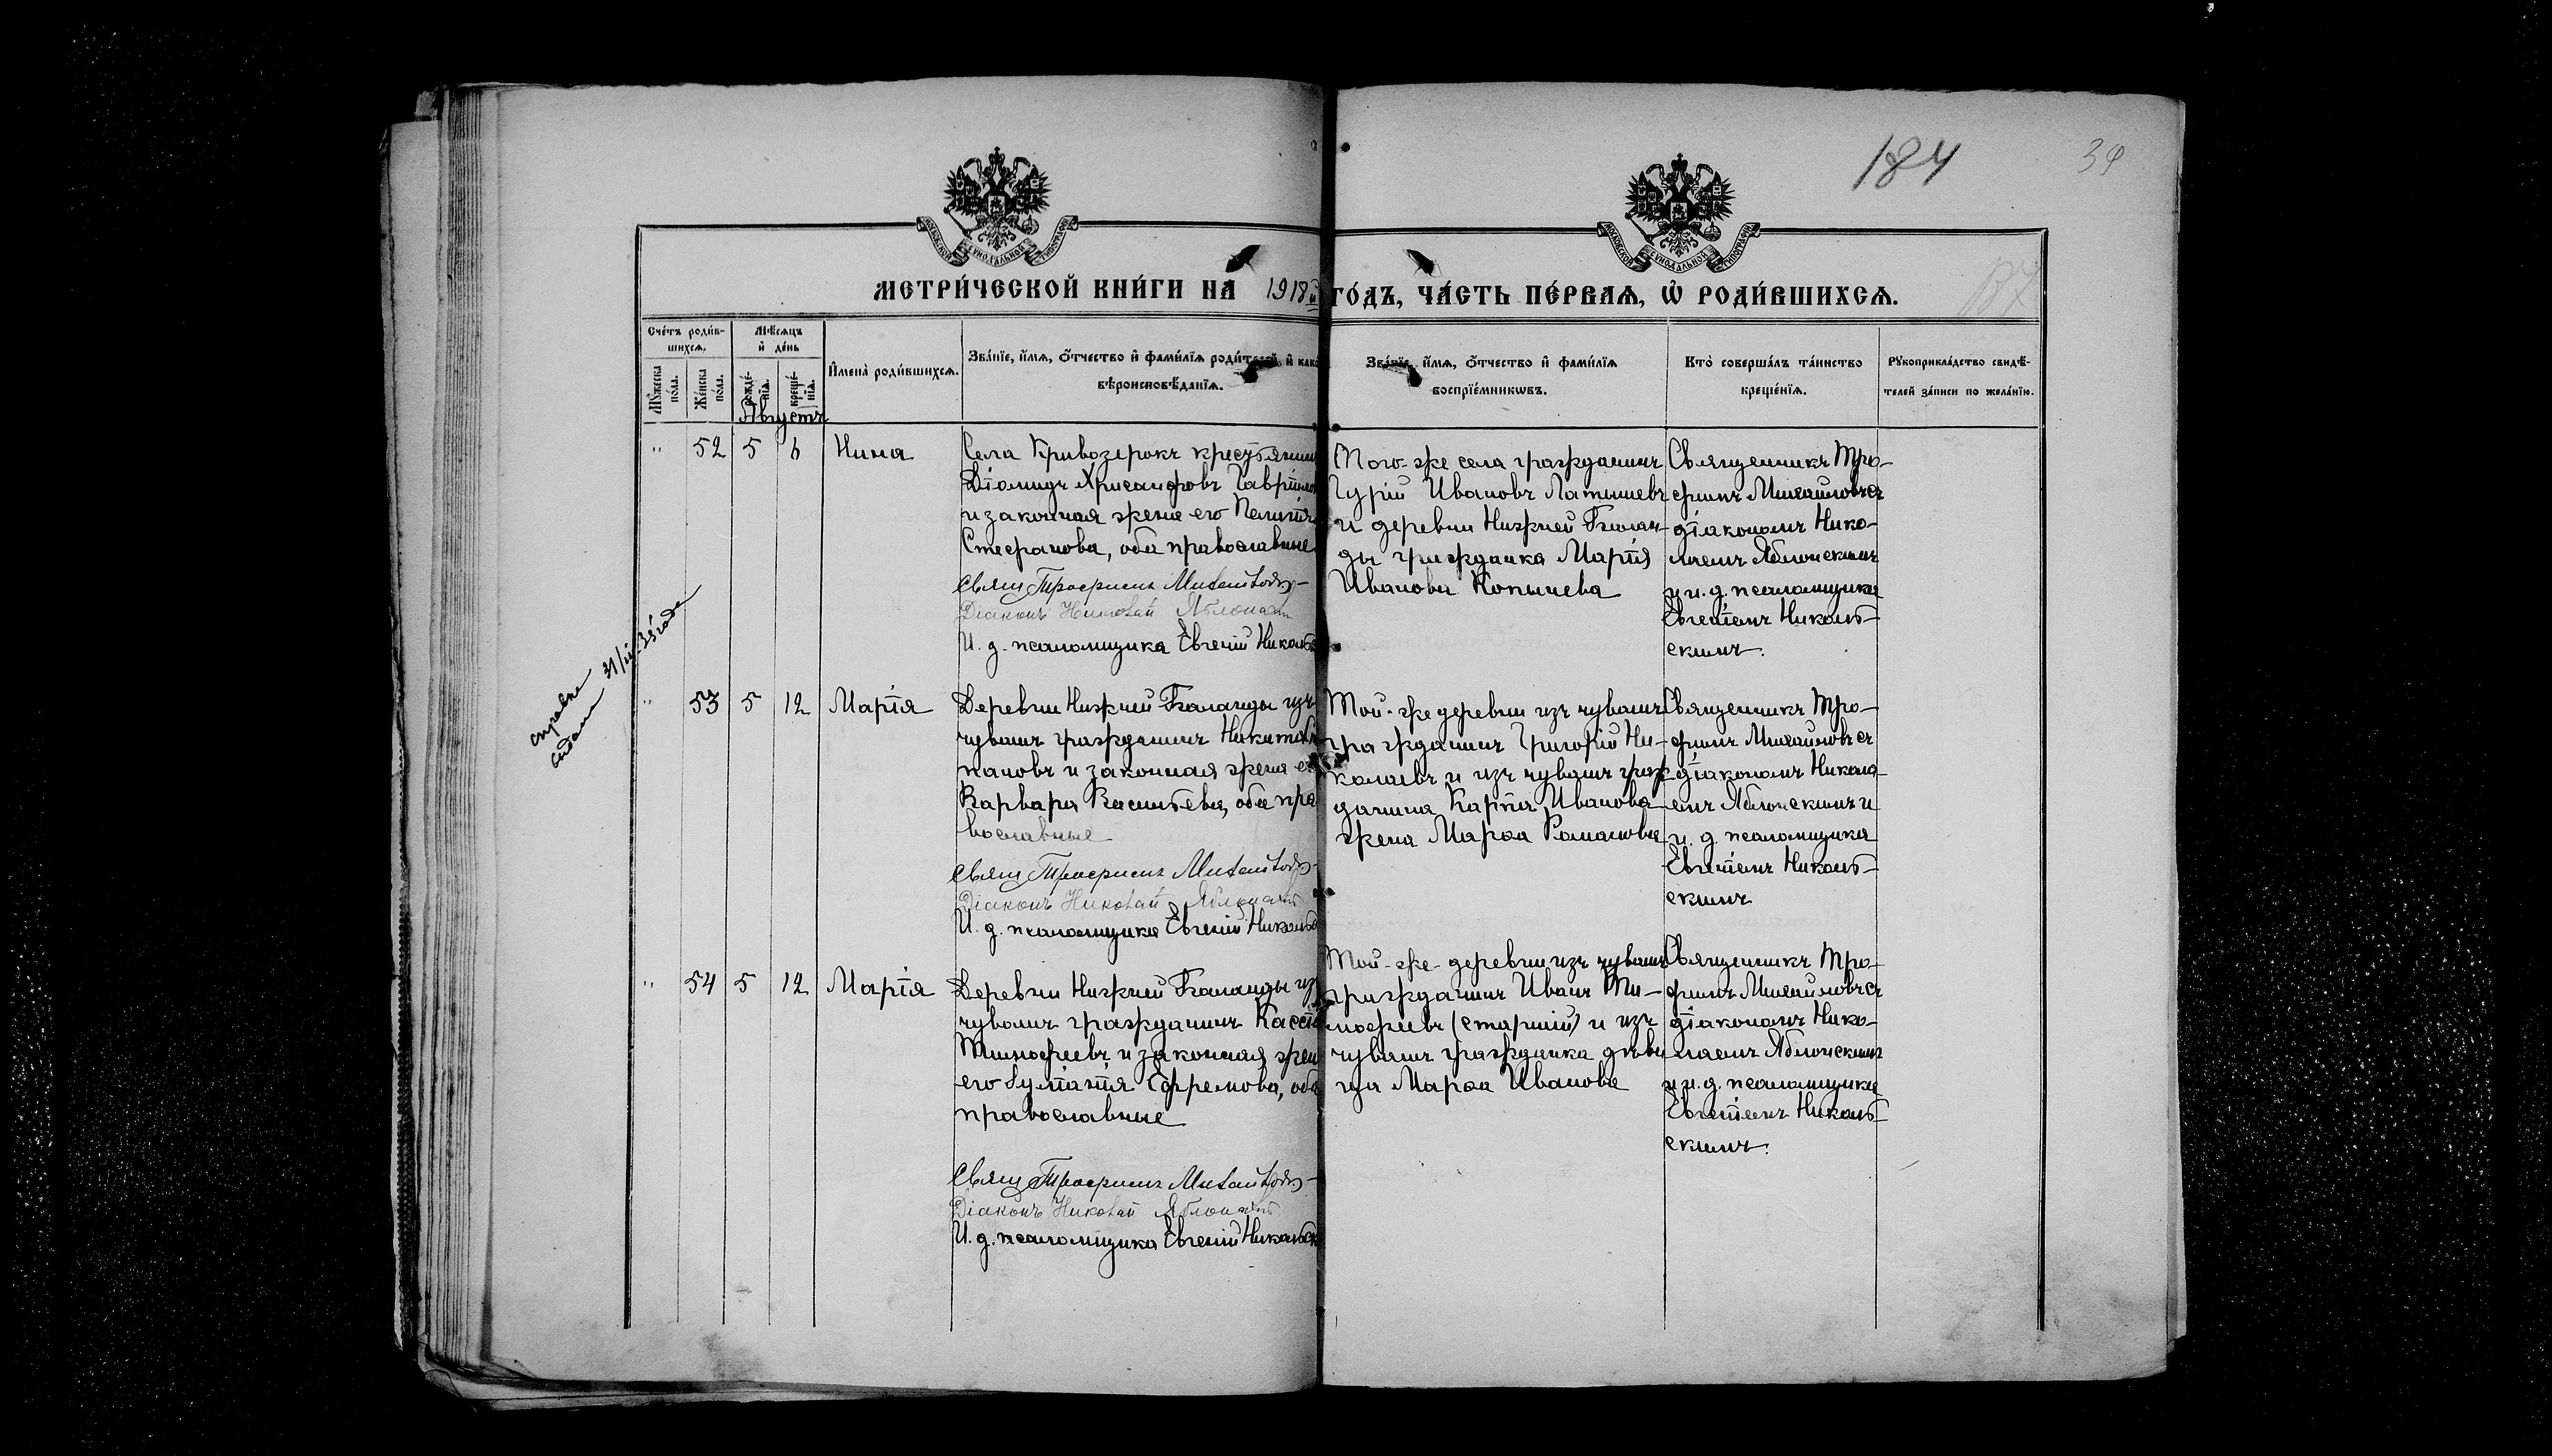 184
34
МЕТРИ́ЧЕСКОЙ КНИ́ГИ НА 1918й ГО́ДЪ, ЧА́СТЬ ПЕ́РВАЯ, Ѡ҆ РОДИ́ВШИХСЯ.
Сче́тъ роди́в-
шихсѧ.
Мꙋ́жеска
по́ла.
Же́нска
по́ла.
Мѣ́сѧцъ
и҆ де́нь
рожде́-
нїѧ.
креще́-
нїѧ.
Августъ
И҆мена̀ роди́вшихсѧ.
Зва́нїе, и҆́мѧ, ѻ҆́тчество и҆ фами́лїѧ роди́телей, и҆ како
вѣроисповѣ́данїѧ.
Зва́нїе, и҆́мѧ, ѻ҆́тчество и҆ фами́лїѧ
воспрїе́мникѡвъ.
Кто̀ соверша́лъ та́инство
креще́нїѧ.
Рꙋкоприкла́дство свидѣ́-
телей за́писи по жела́нїю.
" 52 5 6 Нина
Села Кривозерокъ крестьянин
Діомидъ Хрисанфовъ Гаврило
и законная жена его Пелагія
Стефанова, оба православные
Свящ Трофимъ Михайловъ
Діаконъ Николай Яблонск
И. д. псаломщика Евгеній Никольс
Того-же села гражданинъ
Гурій Ивановъ Латышевъ
и деревни Нижней
ды гражданка Марія
Иванова Копычева
Священникъ Тро-
фимъ Михайловъ съ
діакономъ Нико-
лаемъ Яблонскимъ
и и. д. псаломщика
Евгеніемъ Николь-
скимъ.
справка
выдана 31/III-35 года
" 53 5 12 Марія
Деревни Нижней изъ
чувашъ гражданинъ Никита
пановъ и законная жена е
Варвара Васильева, оба пра
вославные
Свящ Трофимъ Михайловъ
Діаконъ Николай Яблонскій
И. д. псаломщика Евгеній Никольс
Той-же деревни изъ чувашъ
гражданинъ Григорій Ни-
колаевъ и изъ чувашъ граж-
данина Карпа Иванова
жена Марѳа Романова
Священникъ Тро-
фимъ Михайловъ съ
діакономъ Никола-
емъ Яблонскимъ и
и. д. псаломщика
Евгеніемъ Николь-
скимъ
" 54 5 12 Марія
Деревни Нижней из
чувашъ гражданинъ Кассі
Тимофеевъ и законная жен
его Ефремова, оба
православные
Свящ Трофимъ Михайловъ
Діаконъ Николай Яблонскій
И. д. псаломщика Евгеній Никольск
Той-же-деревни изъ чувашъ
гражданинъ Иванъ Ти-
мофеевъ (старшій) и изъ
чувашъ гражданка дѣви
ца Марѳа Иванова
Священникъ Тро-
фимъ Михайловъ съ
діакономъ Нико-
лаемъ Яблонскимъ
и и. д. псаломщика
Евгеніемъ Николь-
скимъ.